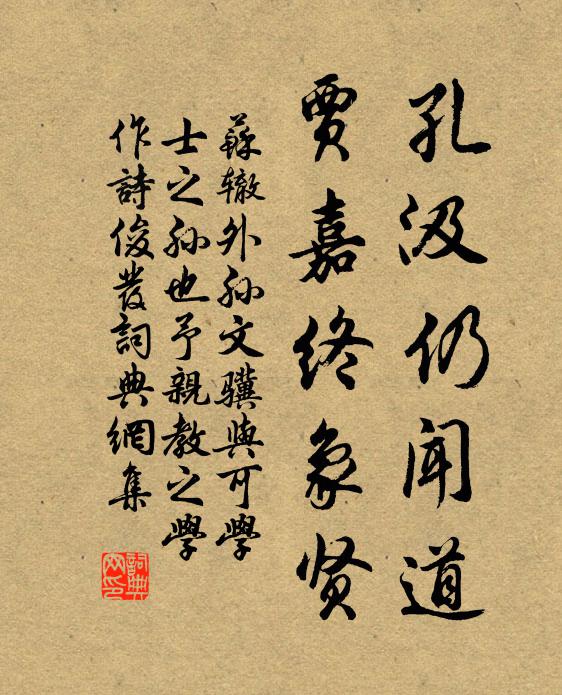 孔汲仍闻道
贾嘉终象贤
蘇辙外孙文骥與可學
士之孙也予親教之學
作詩俊發詞典網集
詞典
网印